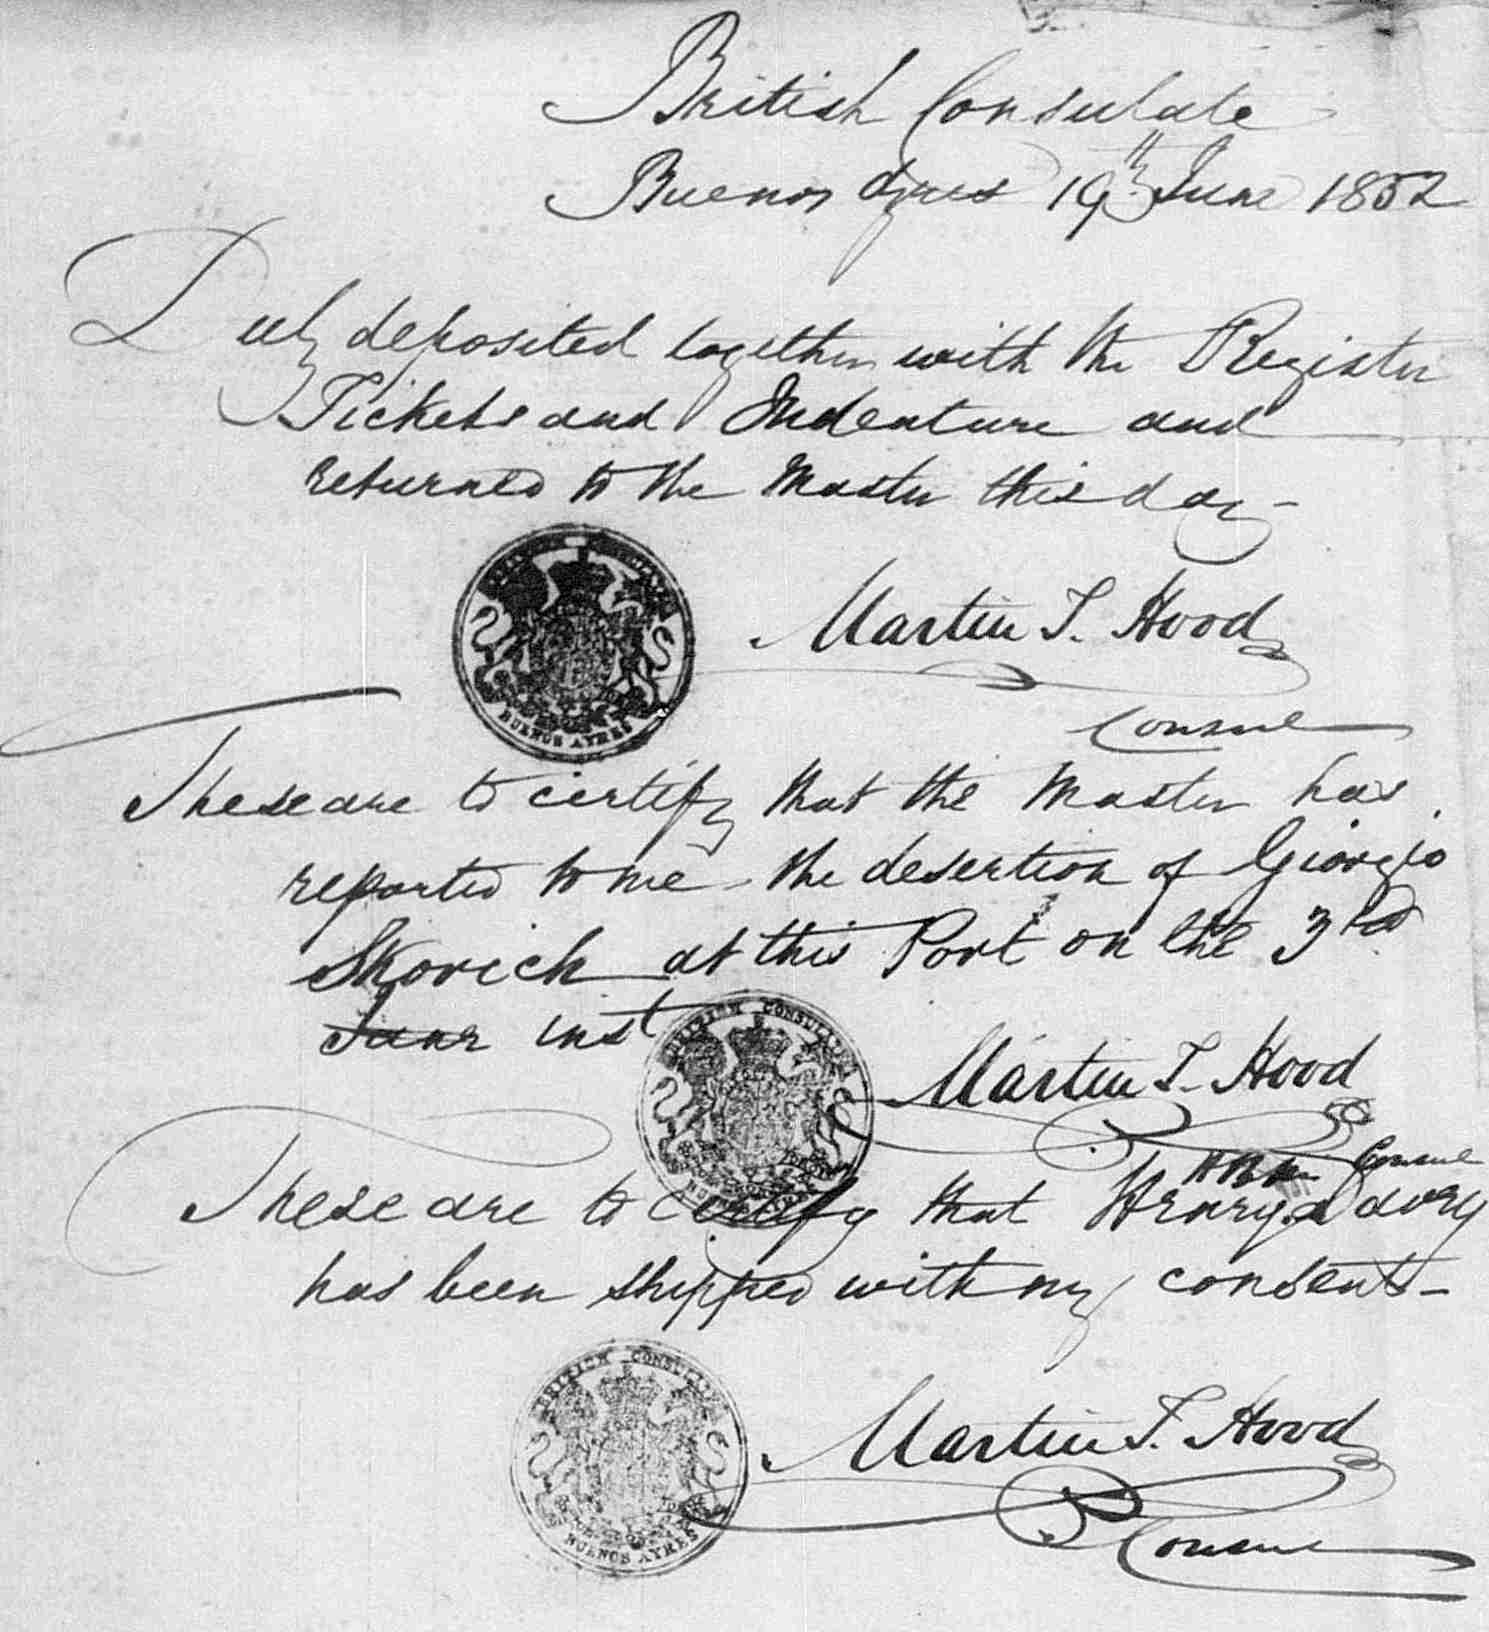 British Consulate
Buenos Ayres 19th June 1852
Duly deposited together with the Register
Tickets and Indenture and
returned to the Master this day -
BUENOS AYRES
Martin T. Hood
Consul
These are to certify that the Master has
reported to me the desertion of Giorgio
Skovich at this Port on the 3rd
June inst
BRITISH CONSULATE
Martin T. Hood
Consul
These are to certify that Henry
has been shipped with my consent -
BRITISH CONSULATE
BUENOS AYRES
Martin T. Hood
Consul